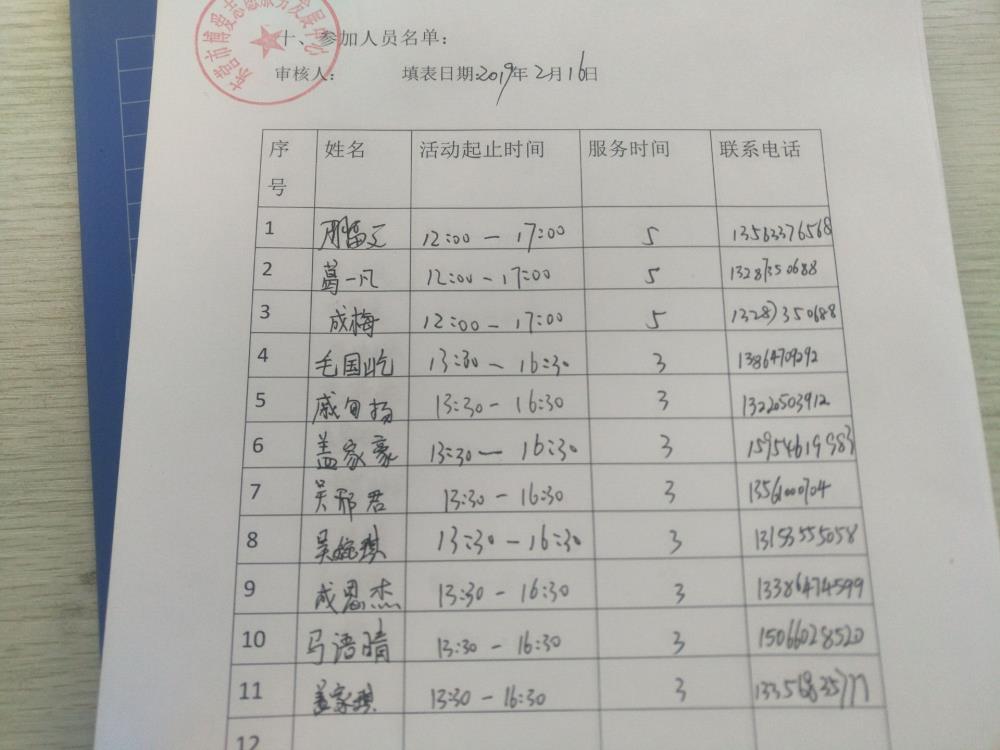 东营市博爱志愿服务发展中心
十、参加人员名单:
审核人: 填表日期:2019年2月16日
序号 姓名 活动起止时间 服务时间 联系电话
1 12:00 — 17:00 5 13563376568
2 葛一凡 12:00 - 17:00 5 13287350688
3 成梅 12:00 - 17:00 5 13287350688
4 毛国屹 13:30 - 16:30 3
5 戚旬扬 13:30 - 16:30 3
6 盖家豪 13:30 — 16:30 3 15954619983
7 吴邢君 13:30 - 16:30 3
8 吴婉琪 13:30 - 16:30 3 13153555058
9 成思杰 13:30 - 16:30 3 13386474599
10 马语晴 13:30 - 16:30 3 15066028520
11 盖家琪 13:30 - 16:30 3
12